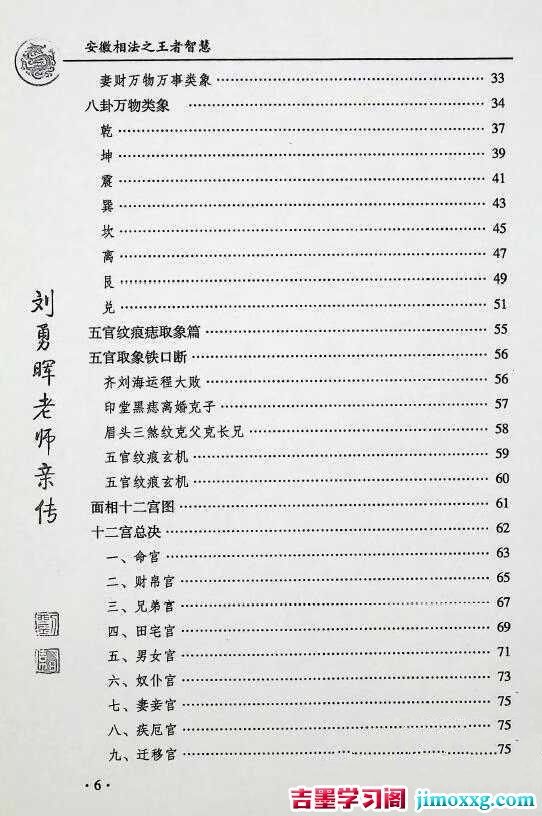 安徽相法之王者智慧
妻财万物万事类象 33
八卦万物类象 34
乾 37
坤 39
震 41
巽 43
坎 45
离 47
艮 49
兑 51
五官纹痕痣取象篇 55
五官取象铁口断 56
齐刘海运程大败 56
印堂黑痣离婚克子 57
眉头三煞纹克父克长兄 58
五官纹痕玄机 59
五官纹痕玄机 60
面相十二宫图 61
十二宫总决 62
一、命宫 63
二、财帛宫 65
三、兄弟宫 67
四、田宅宫 69
五、男女宫 71
六、奴仆宫 73
七、妻妾宫 75
八、疾厄宫 75
九、迁移宫 75
刘勇晖老师亲传
·6·
吉墨学习阁 jimoxxg.com